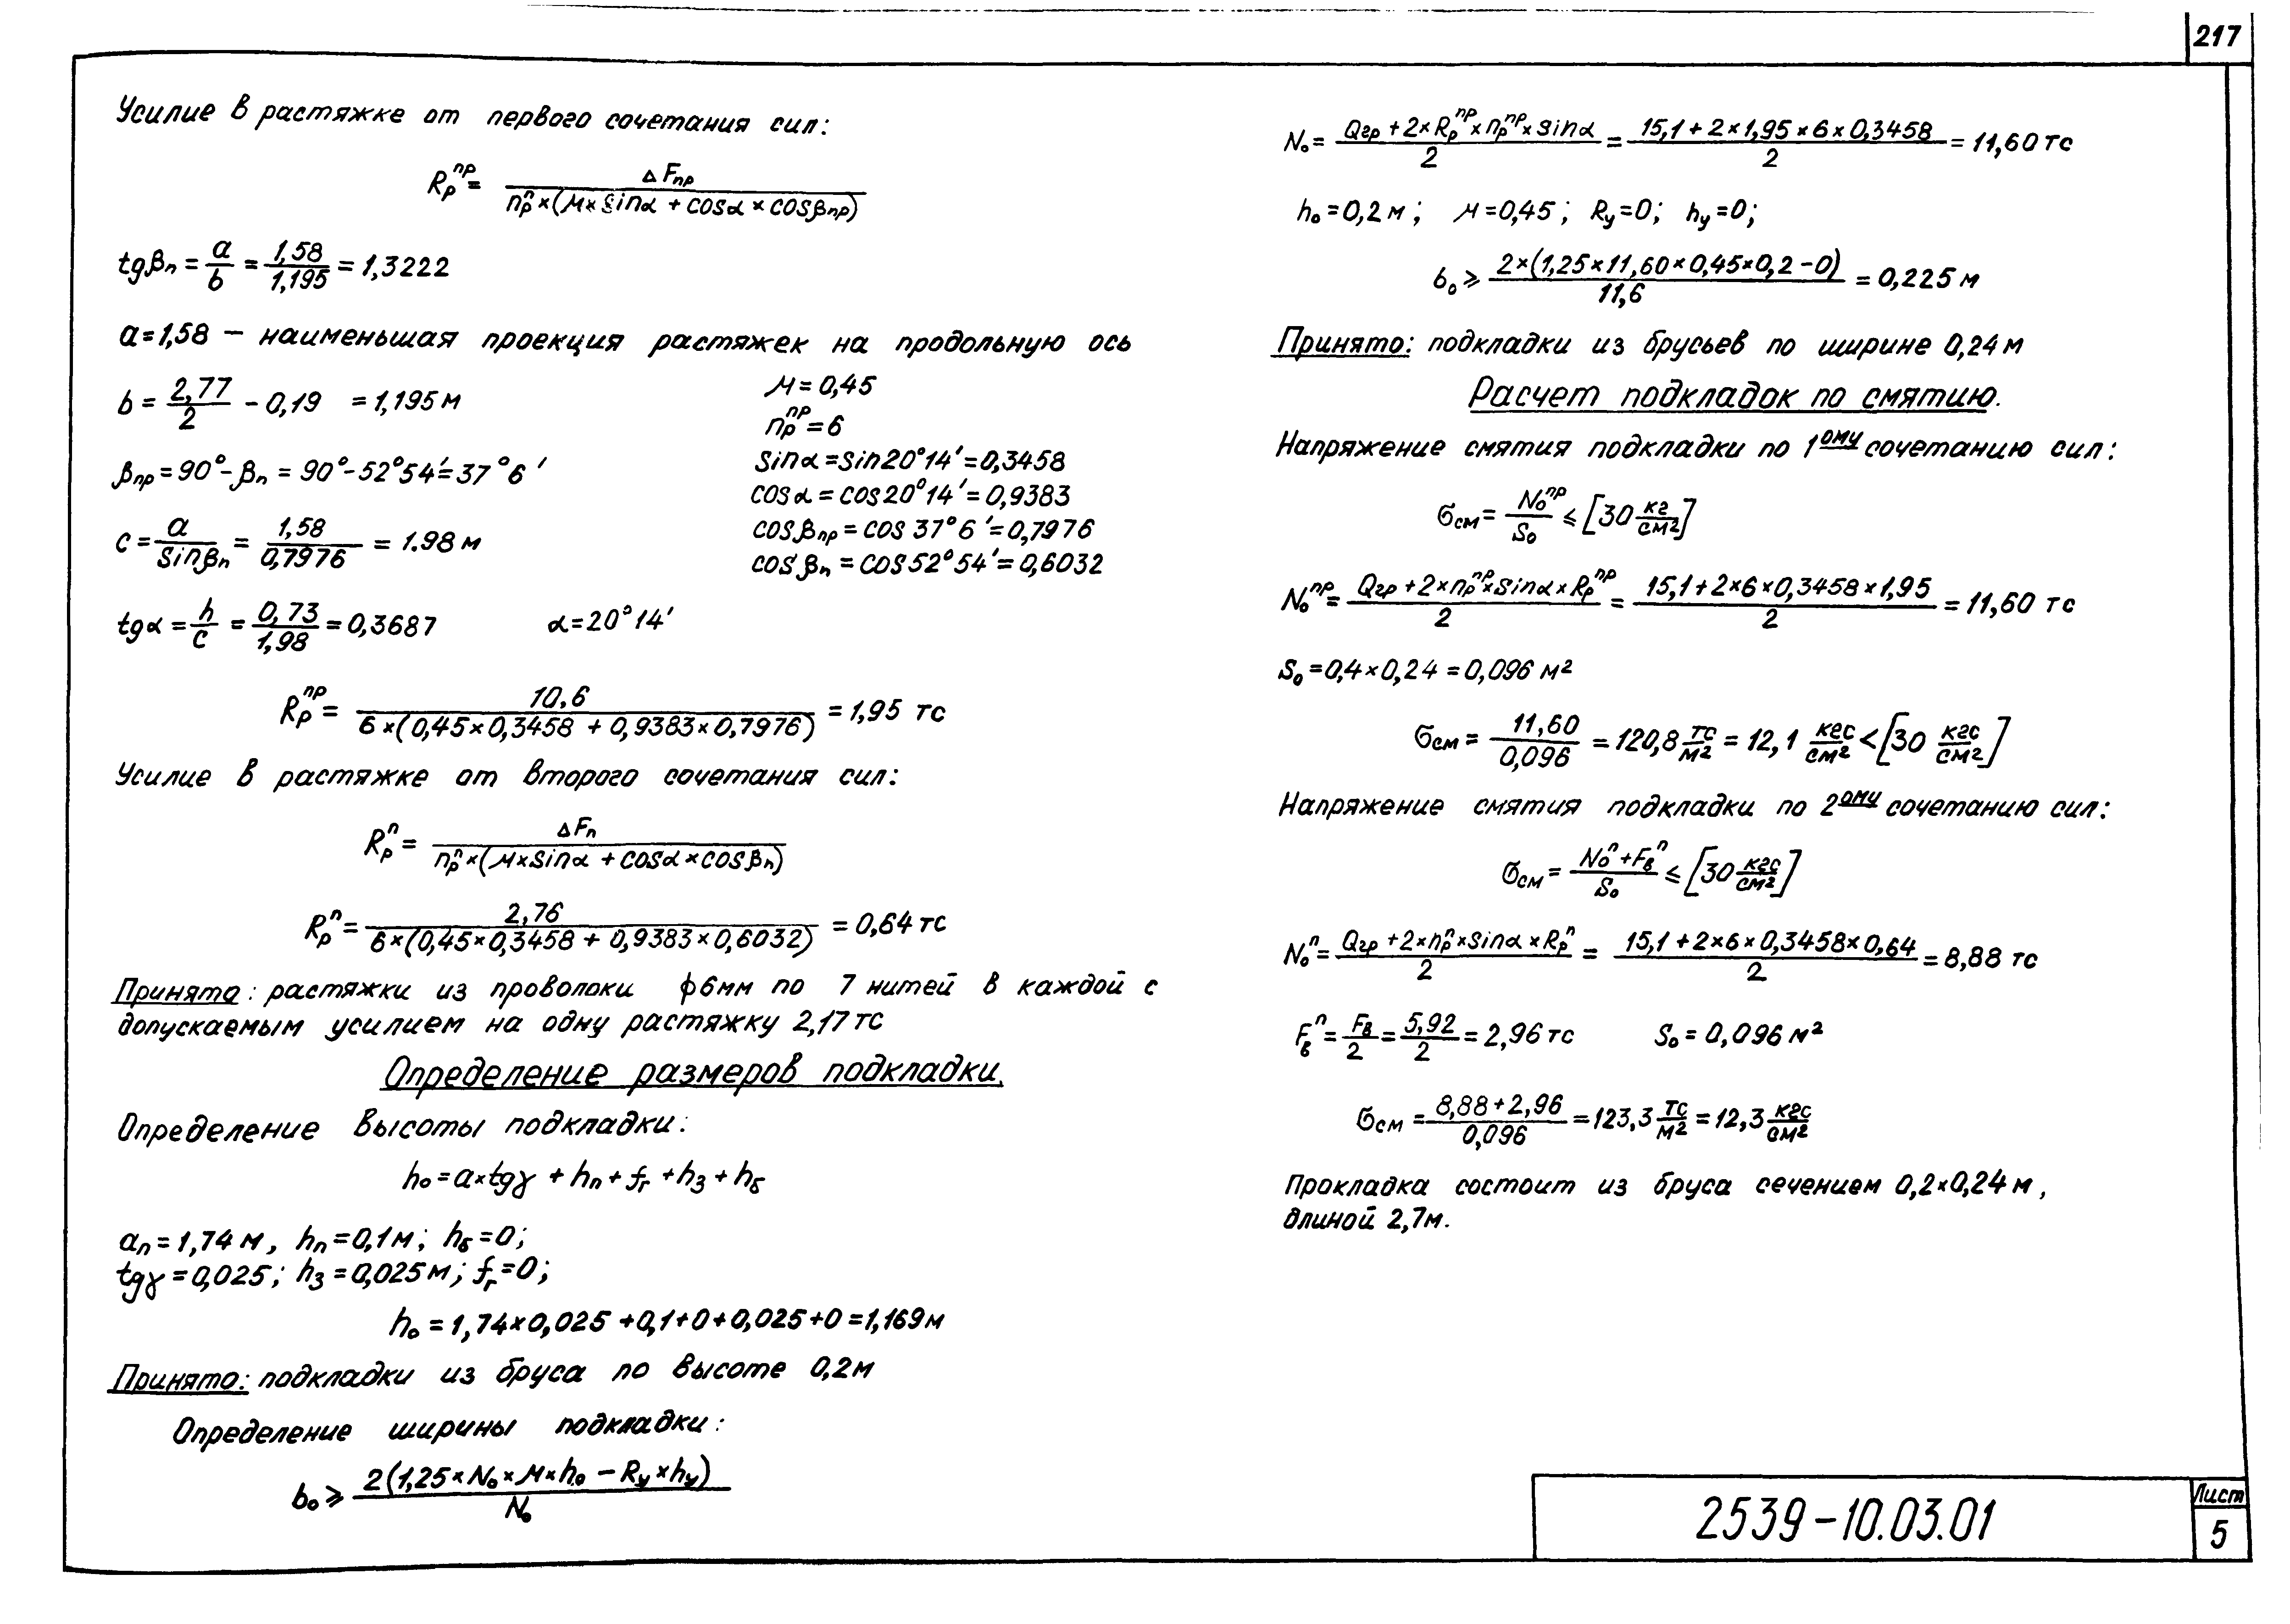 217
Усилие в растяжке от первого сочетания сил:
Rрпр = ΔFпр / nрп×(μ×sinα + cosα×cosβпр)
tgβп = a/b = 1,58/1,195 = 1,3222
a=1,58 – наименьшая проекция растяжек на продольную ось
b = 2,77/2 - 0,19 = 1,195 м
βпр = 90°-βп = 90°-52°54′=37°6′
c = a/sinβп = 1,58/0,7976 = 1.98 м
μ = 0,45
nрпр = 6
sinα = sin20°14′=0,3458
cosα = cos20°14′=0,9383
cosβпр = cos 37°6′=0,7976
cosβп = cos52°54′=0,6032
tgα = h/c = 0,73/1,98 = 0,3687 α=20°14′
Rрпр = 10,6 / 6×(0,45×0,3458 + 0,9383×0,7976) = 1,95 тс
Усилие в растяжке от второго сочетания сил:
Rрп = ΔFп / nрп×(μ×sinα + cosα×cosβп)
Rрп = 2,76 / 6×(0,45×0,3458 + 0,9383×0,6032) = 0,64 тс
Принято: растяжки из проволоки ф6мм по 7 нитей в каждой с
допускаемым усилием на одну растяжку 2,17тс
Определение размеров подкладки.
Определение высоты подкладки:
h₀=a×tgγ + hп + fг + hз + hб
aп=1,74 м, hп=0,1м; hб=0;
tgγ=0,025; hз=0,025м; fг=0;
h₀ = 1,74×0,025 +0,1+0+0,025+0 =1,169м
Принято: подкладки из бруса по высоте 0,2м
Определение ширины подкладки:
b₀ ⩾ 2(1,25×N₀×μ×h₀ – Rу×hу) / N₀
N₀ = Qгр+2×Rрпр×nрпр×sinα / 2 = 15,1+2×1,95×6×0,3458 / 2 = 11,60 тс
h₀=0,2м; μ=0,45; Rу=0; hу=0;
b₀⩾ 2×(1,25×11,60×0,45×0,2-0) / 11,6 = 0,225 м
Принято: подкладки из брусьев по ширине 0,24м
Расчет подкладок по смятию.
Напряжение смятия подкладки по 1ому сочетанию сил:
σсм = N₀пр/S₀ ⩽ [30 кг/см²]
N₀пр = Qгр+2×nрпр×sinα×Rрпр / 2 = 15,1+2×6×0,3458×1,95 / 2 = 11,60 тс
S₀=0,4×0,24 = 0,096 м²
σсм = 11,60/0,096 = 120,8 тс/м² = 12,1 кгс/см² < [30 кгс/см²]
Напряжение смятия подкладки по 2ому сочетанию сил:
σсм = N₀п+Fвп / S₀ ⩽ [30 кгс/см²]
N₀п = Qгр+2×nрп×sinα×Rрп / 2 = 15,1+2×6×0,3458×0,64 / 2 = 8,88 тс
Fвп = Fв/2 = 5,92/2 = 2,96 тс S₀ = 0,096 м²
σсм = 8,88+2,96 / 0,096 = 123,3 тс/м² = 12,3 кгс/см²
Прокладка состоит из бруса сечением 0,2×0,24м,
длиной 2,7м.
2539-10.03.01
Лист
5